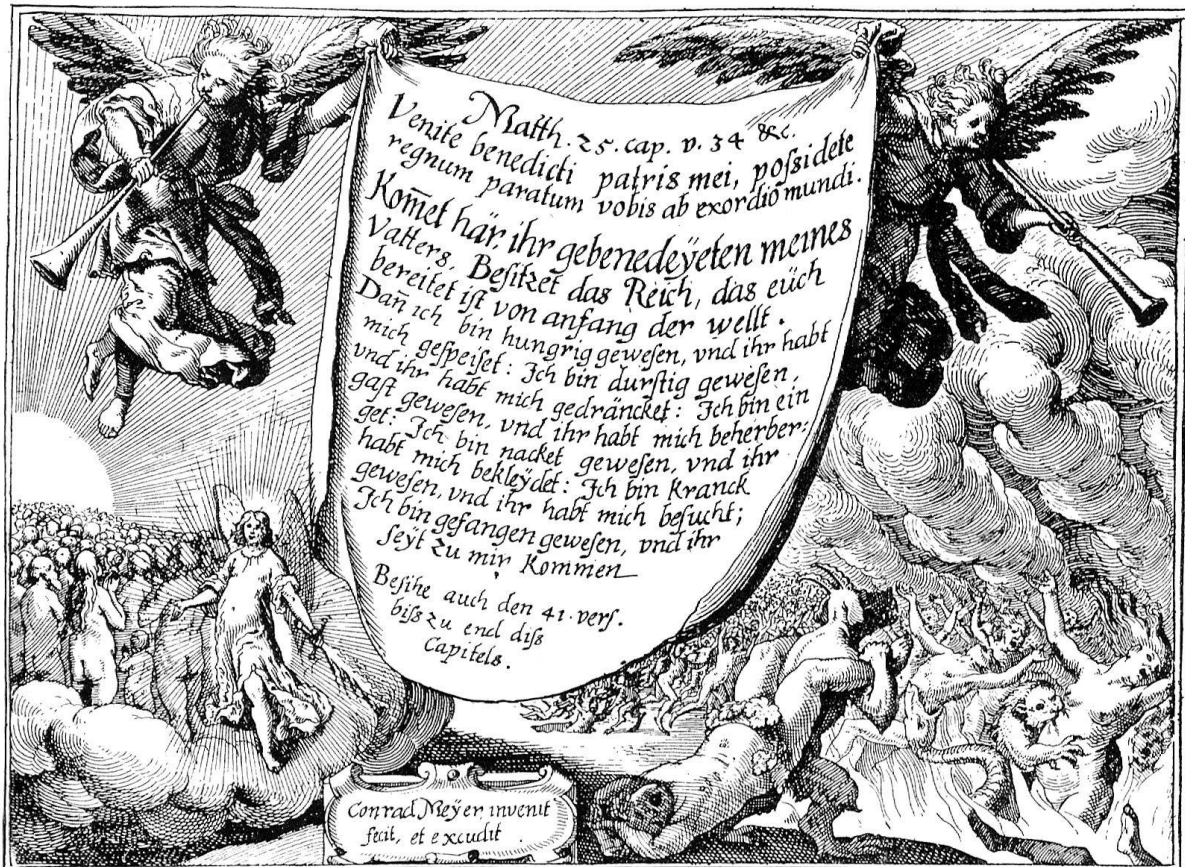 Matth. 25. cap. v. 34 &c.
Venite benedicti patris mei, poſsidete
regnum paratum vobis ab exordio mundi.
Kom̄et här, ihr gebenedeÿeten meines
Vatters, Beſitzet das Reich, das eüch
bereitet iſt von anfang der wellt.
Dan̄ ich bin hungrig geweſen, vnd ihr habt
mich geſpeiſet: Ich bin durſtig geweſen,
vnd ihr habt mich gedräncket: Ich bin ein
gaſt geweſen, vnd ihr habt mich beherber:
get: Ich bin nacket geweſen, vnd ihr
habt mich bekleÿdet: Ich bin Kranck
geweſen, vnd ihr habt mich beſucht;
Ich bin gefangen geweſen, vnd ihr
ſeÿt zu mir Kommen
Beſihe auch den 41. verſ.
biſs zu end diſs
Capitels.
Conrad Meÿer invenit
fecit, et excudit.